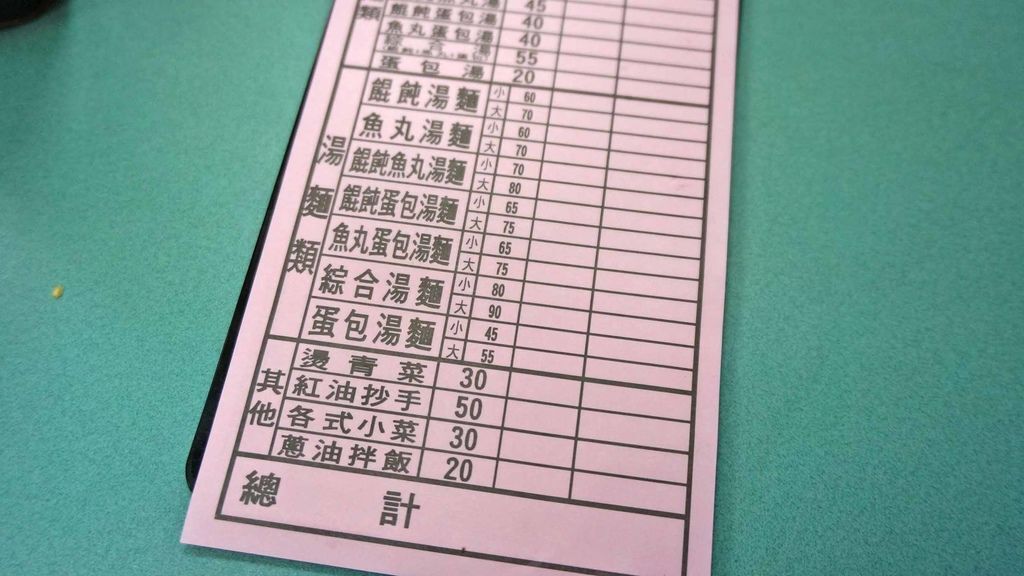 類
魚丸湯 45
餛飩蛋包湯 40
魚丸蛋包湯 40
綜合湯 55
蛋包湯 20
湯麵類
餛飩湯麵 小 60
大 70
魚丸湯麵 小 60
大 70
餛飩魚丸湯麵 小 70
大 80
餛飩蛋包湯麵 小 65
大 75
魚丸蛋包湯麵 小 65
大 75
綜合湯麵 小 80
大 90
蛋包湯麵 小 45
大 55
其他
燙青菜 30
紅油抄手 50
各式小菜 30
蔥油拌飯 20
總計